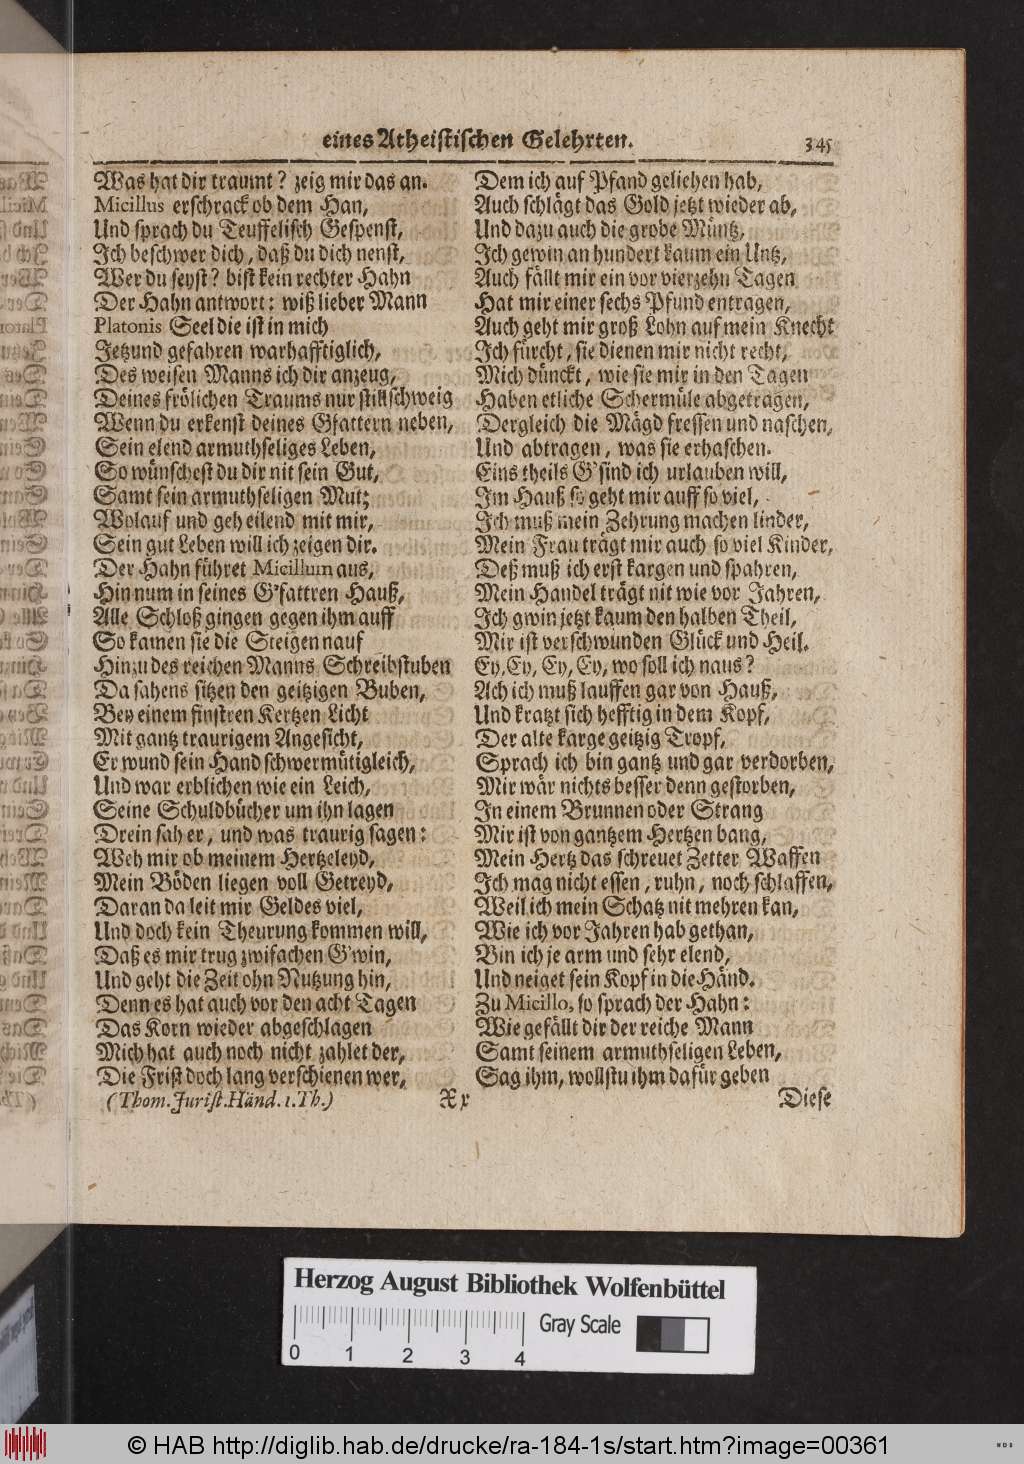 eines Atheistischen Gelehrten. 345
Was hat dir traumt? zeig mir das an.
Micillus erschrack ob dem Han,
Und sprach du Teuffelisch Gespenst,
Ich beschwer dich, daß du dich nenst,
Wer du seyst? bist kein rechter Hahn
Der Hahn antwort: wiß lieber Mann
Platonis Seel die ist in mich
Jetzund gefahren warhafftiglich,
Des weisen Manns ich dir anzeug,
Deines frölichen Traums nur stillschweig
Wenn du erkenst deines Gfattern neben,
Sein elend armuthseliges Leben,
So wünschest du dir nit sein Gut,
Samt sein armuthseligen Mut;
Wolauf und geh eilend mit mir,
Sein gut Leben will ich zeigen dir.
Der Hahn führet Micillum aus,
Hin num in seines G'fattren Hauß,
Alle Schloß gingen gegen ihm auff
So kamen sie die Steigen nauf
Hinzu des reichen Manns Schreibstuben
Da sahens sitzen den geitzigen Buben,
Bey einem finstren Kertzen Licht
Mit gantz traurigem Angesicht,
Er wund sein Hand schwermütigleich,
Und war erblichen wie ein Leich,
Seine Schuldbücher um ihn lagen
Drein sah er, und was traurig sagen:
Weh mir ob meinem Hertzeleyd,
Mein Böden liegen voll Getreyd,
Daran da leit mir Geldes viel,
Und doch kein Theurung kommen will,
Daß es mir trug zwifachen G'win,
Und geht die Zeit ohn Nutzung hin,
Denn es hat auch vor den acht Tagen
Das Korn wieder abgeschlagen
Mich hat auch noch nicht zahlet der,
Die Frist doch lang verschienen wer,
Dem ich auf Pfand geliehen hab,
Auch schlägt das Gold jetzt wieder ab,
Und dazu auch die grobe Müntz,
Ich gewin an hundert kaum ein Untz,
Auch fällt mir ein vor vierzehn Tagen
Hat mir einer sechs Pfund entragen,
Auch geht mir groß Lohn auf mein Knecht
Ich fürcht, sie dienen mir nicht recht,
Mich dünckt, wie sie mir in den Tagen
Haben etliche Schermüle abgetragen,
Dergleich die Mägd fressen und naschen,
Und abtragen, was sie erhaschen.
Eins theils G'sind ich urlauben will,
Im Hauß so geht mir auff so viel,
Ich muß mein Zehrung machen linder,
Mein Frau trägt mir auch so viel Kinder,
Deß muß ich erst kargen und spahren,
Mein Handel trägt nit wie vor Jahren,
Ich gwin jetzt kaum den halben Theil,
Mir ist verschwunden Glück und Heil.
Ey, Ey, Ey, Ey, wo soll ich naus?
Ach ich muß lauffen gar von Hauß,
Und kratzt sich hefftig in dem Kopf,
Der alte karge geitzig Tropf,
Sprach ich bin gantz und gar verdorben,
Mir wär nichts besser denn gestorben,
In einem Brunnen oder Strang
Mir ist von gantzem Hertzen bang,
Mein Hertz das schreuet Zetter Waffen
Ich mag nicht essen, ruhn, noch schlaffen,
Weil ich mein Schatz nit mehren kan,
Wie ich vor Jahren hab gethan,
Bin ich je arm und sehr elend,
Und neiget sein Kopf in die Händ.
Zu Micillo, so sprach der Hahn:
Wie gefällt dir der reiche Mann
Samt seinem armuthseligen Leben,
Sag ihm, wollstu ihm dafür geben
(Thom. Jurist. Händ. 1. Th.) Xx Diese
Herzog August Bibliothek Wolfenbüttel
Gray Scale
0 1 2 3 4
© HAB http://diglib.hab.de/drucke/ra-184-1s/start.htm?image=00361